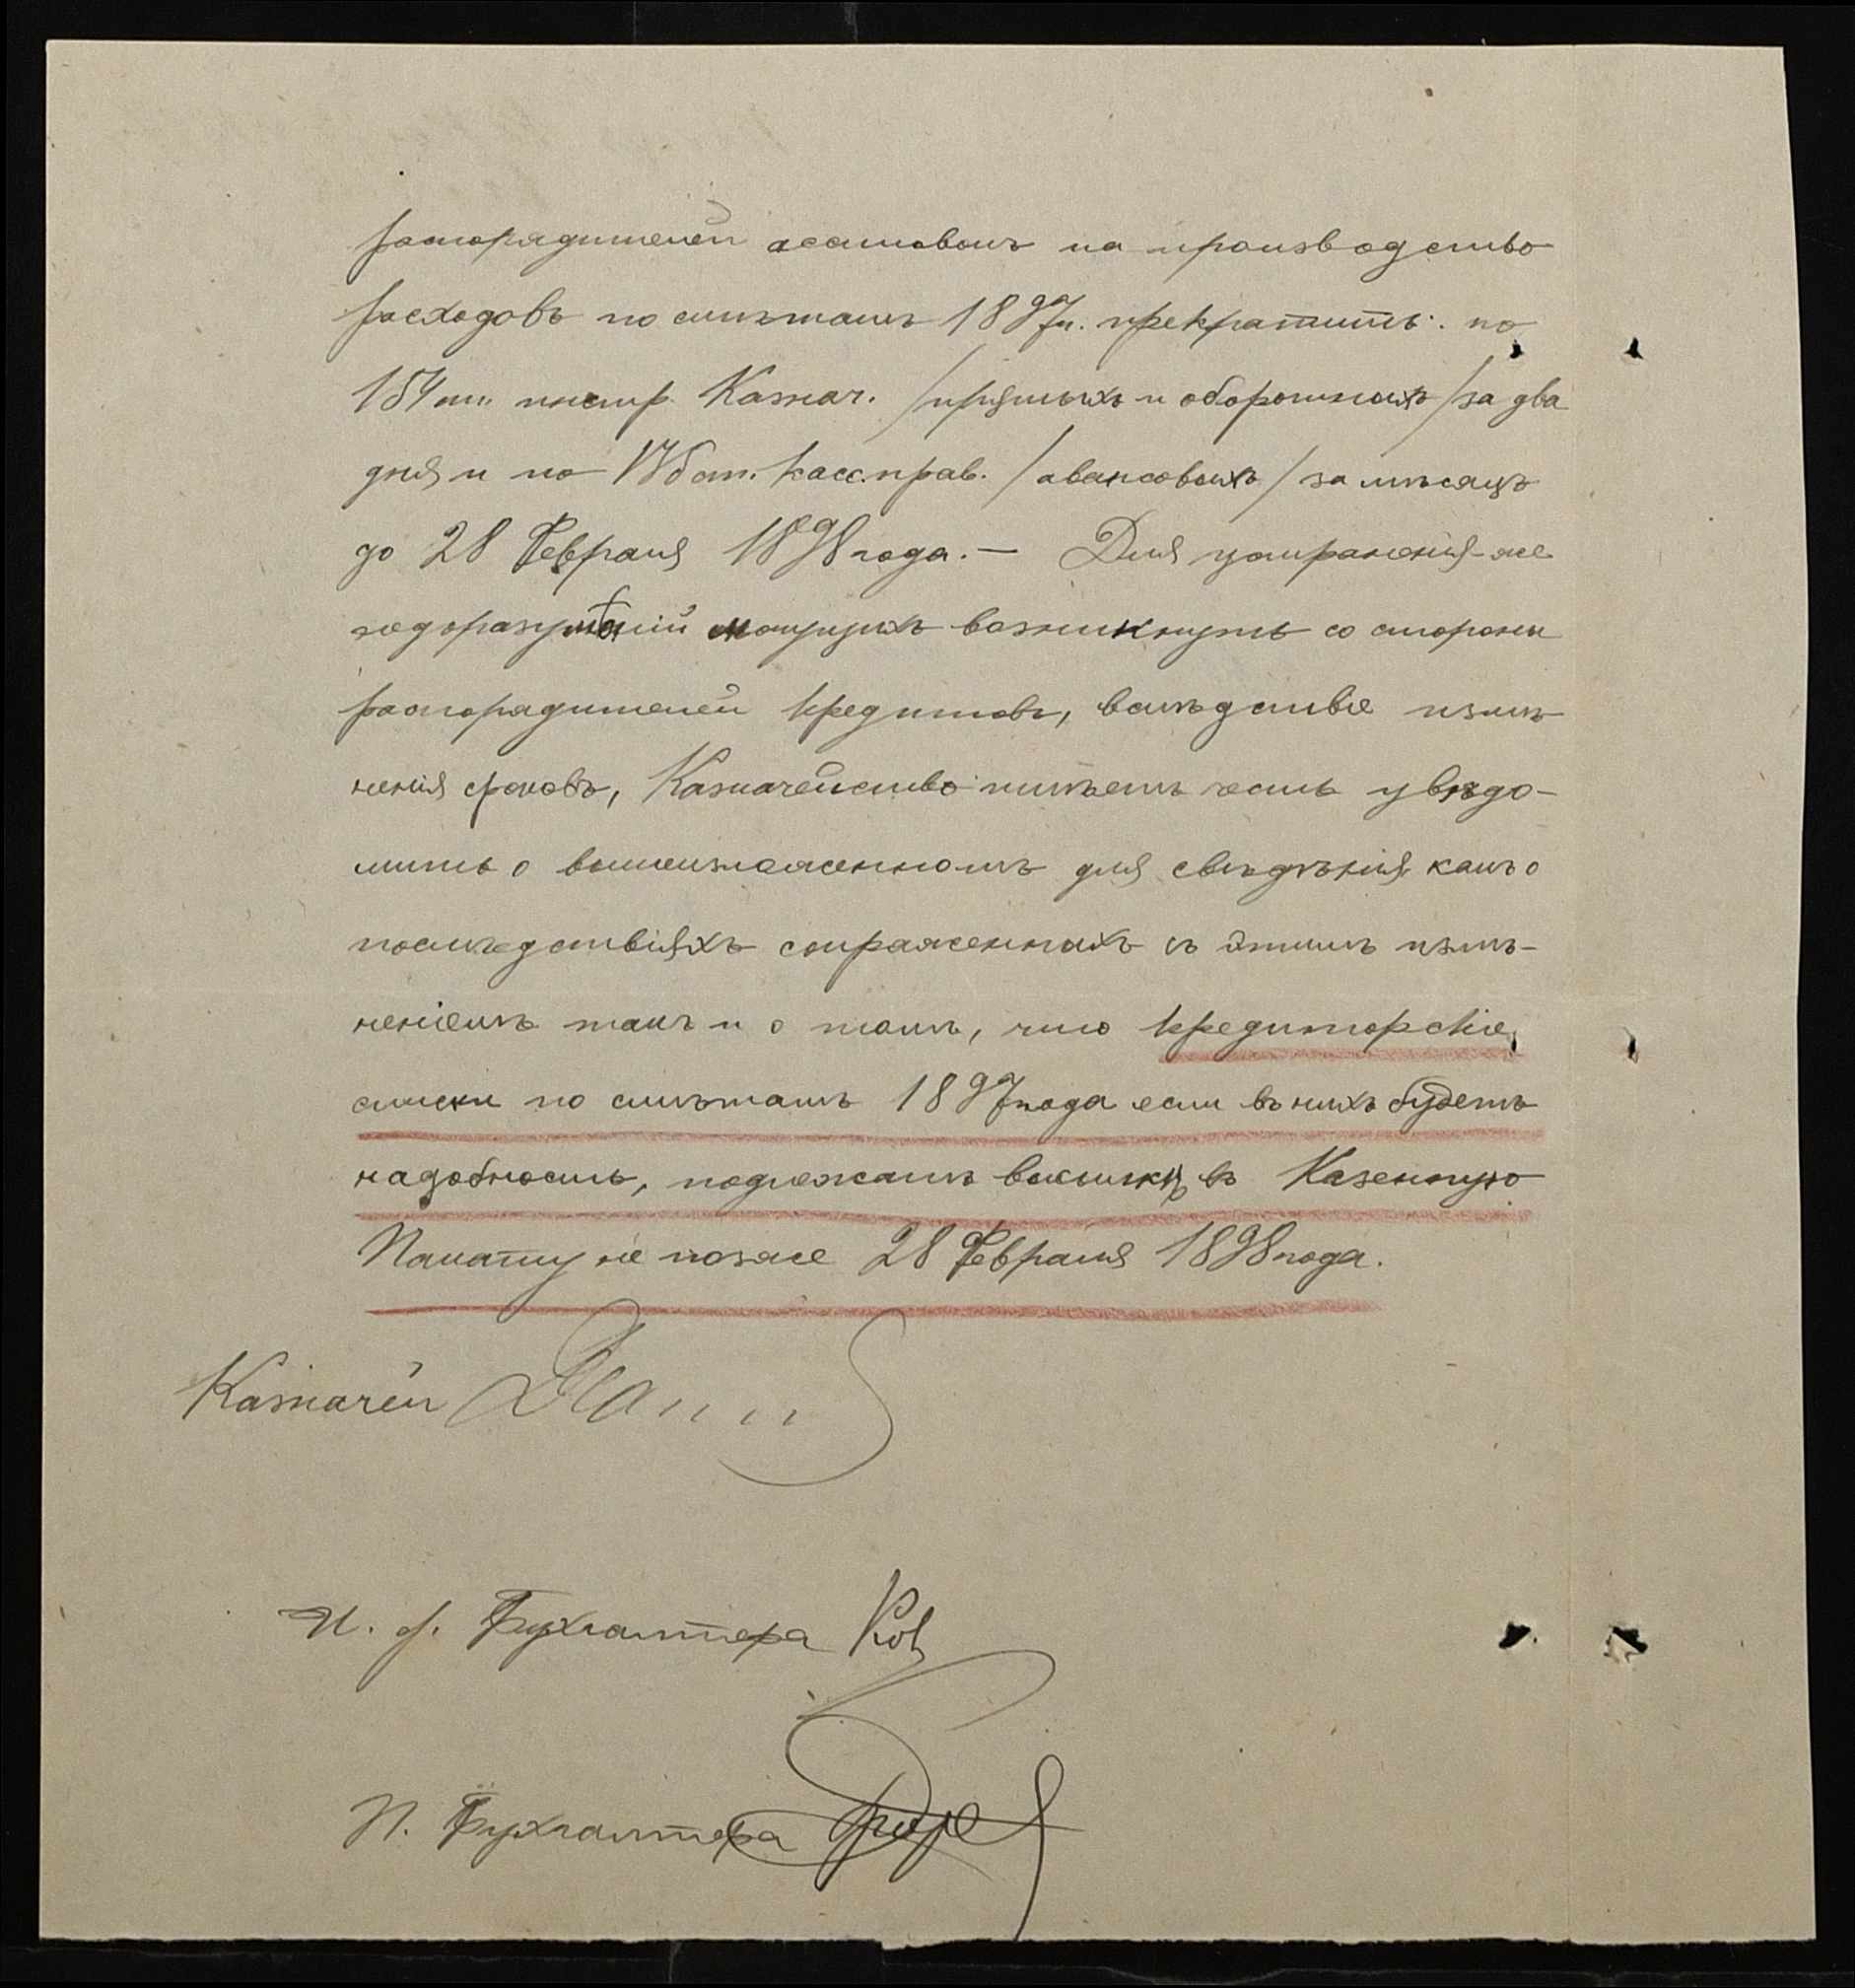 распорядителей ассигновокъ на производство
расходовъ по смѣтамъ 1897 г. прекратить: по
154 ст. инстр. Казнач. /прямыхъ и оборотныхъ/ за два
дня и по ст. касс. прав. /авансовыхъ/ за мѣсяцъ
до 28 Февраля 1898 года. — Для устраненія-же
недоразумѣній могущихъ возникнуть со стороны
распорядителей кредитовъ, вслѣдствіе измѣ-
ненія сроковъ, Казначейство имѣетъ честь увѣдо-
мить о вышеизложенномъ для свѣдѣнія какъ о
послѣдствіяхъ сопряженныхъ съ этимъ измѣ-
неніемъ такъ и о томъ, что кредиторскіе
списки по смѣтамъ 1897 года если въ нихъ будетъ
надобность, подлежатъ высылкѣ въ Казенную
Палату не позже 28 Февраля 1898 года.
Казначей
И. д. Бухгалтера
П. Бухгалтера